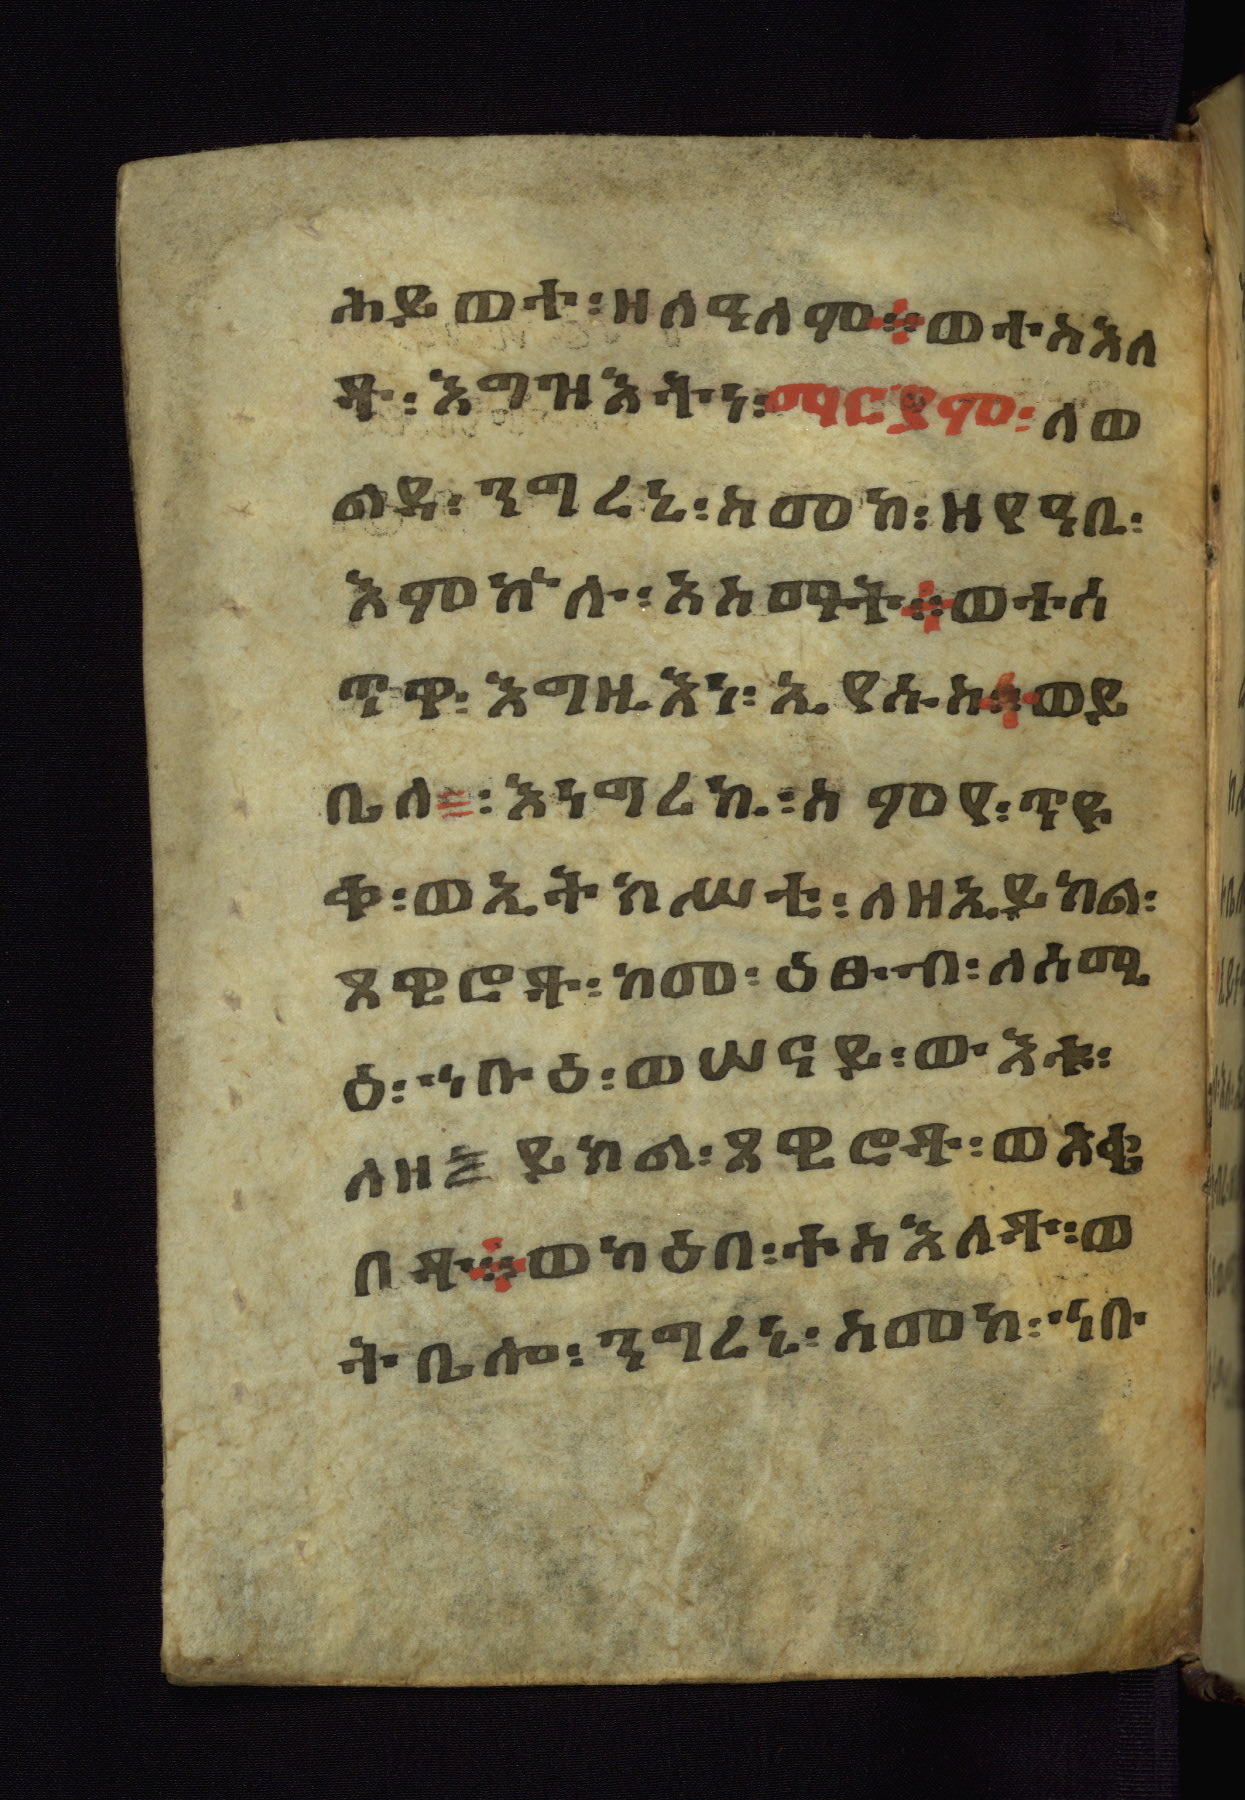 ሕይወተ፡ዘለዓለም፨ወተስእለ
ቶ፡እግዝእትነ፡ማርያም፡ለወ
ልዳ፡ንግረኒ፡ስመከ፡ዘየዓቢ፡
እምኵሉ፡አስማት፨ወተሰ
ጥዋ፡እግዚእነ፡ኢየሱስ፨ወይ
ቤለ፡እነግረኪ፡ስምየ፡ጥዩ
ቀ፡ወኢትክሥቲ፡ለዘኢይክል፡
ጸዊሮቶ፡ከመ፡ዕፁብ፡ለሰሚ
ዕ፡ኅቡዕ፡ወሠናይ፡ውእቱ፡
ለዘ ይክል፡ጸዊሮቶ፡ወአቂ
በቶ፨ወካዕበ፡ተስእለቶ፡ወ
ትቤሎ፡ንግረኒ፡ስመከ፡ኅቡ